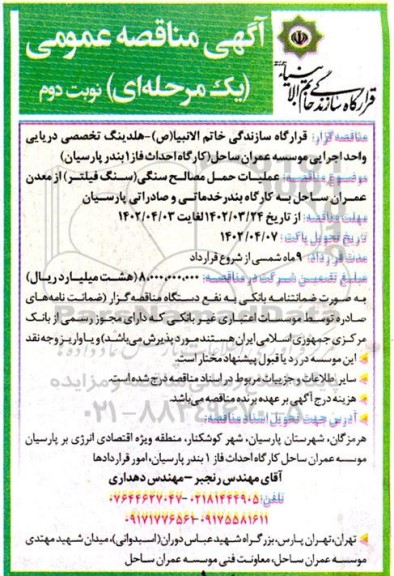 آگهی مناقصه عمومی
(یک مرحله‌ای) نوبت دوم
قرارگاه سازندگی خاتم الانبیاء
مناقصه گزار: قرارگاه سازندگی خاتم الانبیا(ص)-هلدینگ تخصصی دریایی
واحد اجرایی موسسه عمران ساحل(کارگاه احداث فاز۱ بندر پارسیان)
موضوع مناقصه: عملیات حمل مصالح سنگی(سنگ فیلتر) از معدن
عمران ساحل به کارگاه بندر خدماتی و صادراتی پارسیان
مهلت مناقصه: از تاریخ ۱۴۰۲/۰۳/۲۴ لغایت ۱۴۰۲/۰۴/۰۳
تاریخ تحویل پاکت: ۱۴۰۲/۰۴/۰۷
مدت قرارداد: ۹ ماه شمسی از شروع قرارداد
مبلغ تضمین شرکت در مناقصه: ۸,۰۰۰,۰۰۰,۰۰۰ (هشت میلیارد ریال)
به صورت ضمانتنامه بانکی به نفع دستگاه مناقصه گزار (ضمانت نامه‌های
صادره توسط موسسات اعتباری غیر بانکی که دارای مجوز رسمی از بانک
مرکزی جمهوری اسلامی ایران هستند مورد پذیرش می‌باشد) و یا واریز وجه نقد
این موسسه در رد یا قبول پیشنهاد مختار است.
سایر اطلاعات و جزییات مربوط در اسناد مناقصه درج شده است.
هزینه درج آگهی بر عهده برنده مناقصه می‌باشد.
۰۲۱-۸۸۳۴۹۶۷۰-۵
آدرس جهت تحویل اسناد مناقصه:
هرمزگان، شهرستان پارسیان، شهر کوشکنار، منطقه ویژه اقتصادی انرژی بر پارسیان
موسسه عمران ساحل کارگاه احداث فاز ۱ بندر پارسیان، امور قراردادها
آقای مهندس رنجبر – مهندس دهداری
تلفن: ۰۲۱۸۱۴۴۴۹۰۵-۰۷۶۴۴۶۲۷۰۴۷
۰۹۱۷۵۵۸۱۶۱۱-۰۹۱۷۱۷۷۶۵۶۱
تهران، تهران پارس، بزرگراه شهید عباس دوران(اسبدوانی)، میدان شهید مهتدی
موسسه عمران ساحل، معاونت فنی موسسه عمران ساحل